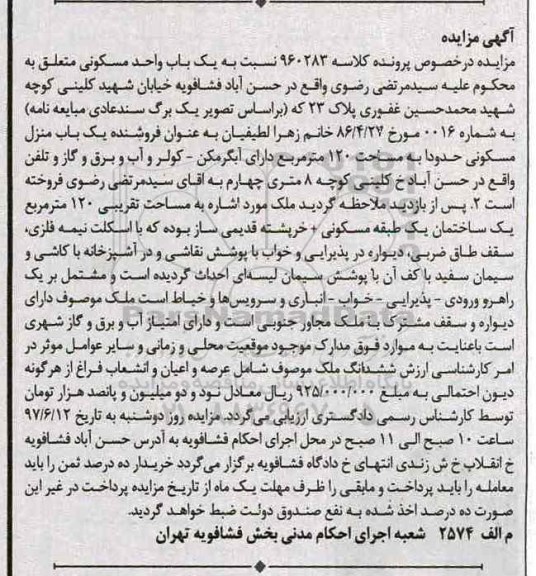 آگهی مزایده
مزایده درخصوص پرونده کلاسه ۹۶۰۲۸۳ نسبت به یک باب واحد مسکونی متعلق به
محکوم علیه سیدمرتضی رضوی واقع در حسن آباد فشافویه خیابان شهید کلینی کوچه
شهید محمدحسین غفوری پلاک ۲۳ که (براساس تصویر یک برگ سندعادی مبایعه نامه)
به شماره ۰۰۱۶ مورخ ۸۶/۴/۲۷ خانم زهرا لطیفیان به عنوان فروشنده یک باب منزل
مسکونی حدودا به مساحت ۱۲۰ مترمربع دارای آبگرمکن - کولر و آب و برق و گاز و تلفن
واقع در حسن آباد خ کلینی کوچه ۸ متری چهارم به اقای سیدمرتضی رضوی فروخته
است ۲. پس از بازدید ملاحظه گردید ملک مورد اشاره به مساحت تقریبی ۱۲۰ مترمربع
یک ساختمان یک طبقه مسکونی + خرپشته قدیمی ساز بوده که با اسکلت نیمه فلزی،
سقف طاق ضربی، دیواره در پذیرایی و خواب با پوشش نقاشی و در آشپزخانه با کاشی و
سیمان سفید با کف آن با پوشش سیمان لیسه‌ای احداث گردیده است و مشتمل بر یک
راهرو ورودی - پذیرایی - خواب - انباری و سرویس‌ها و حیاط است ملک موصوف دارای
دیواره و سقف مشترک با ملک مجاور جنوبی است و دارای امتیاز آب و برق و گاز شهری
است باعنایت به موارد فوق مدارک موجود موقعیت محلی و زمانی و سایر عوامل موثر در
امر کارشناسی ارزش ششدانگ ملک موصوف شامل عرصه و اعیان و انشعاب فراغ از هرگونه
دیون احتمالی به مبلغ ۹۲۵/۰۰۰/۰۰۰ ریال معادل نود و دو میلیون و پانصد هزار تومان
توسط کارشناس رسمی دادگستری ارزیابی می‌گردد. مزایده روز دوشنبه به تاریخ ۹۷/۶/۱۲
ساعت ۱۰ صبح الی ۱۱ صبح در محل اجرای احکام فشافویه به آدرس حسن آباد فشافویه
خ انقلاب خ ش زندی انتهای خ دادگاه فشافویه برگزار می‌گردد خریدار ده درصد ثمن را باید
معامله را باید پرداخت و مابقی را ظرف مهلت یک ماه از تاریخ مزایده پرداخت در غیر این
صورت ده درصد اخذ شده به نفع صندوق دولت ضبط خواهد گردید.
م الف ۲۵۷۴ شعبه اجرای احکام مدنی بخش فشافویه تهران
ParsNamadData